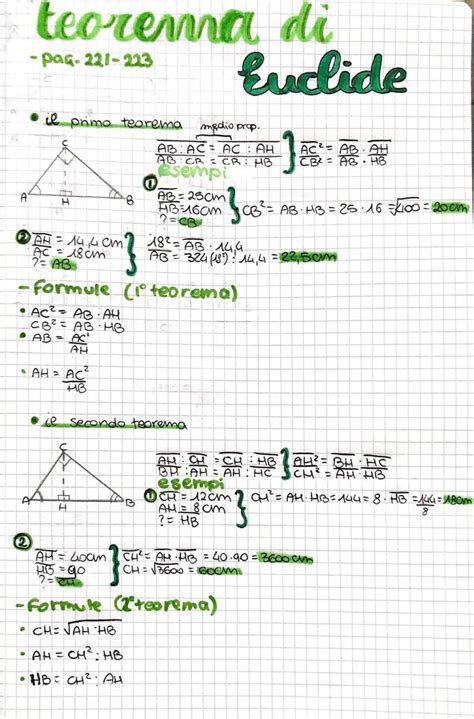 teorema di
Euclide
-pag. 221-223
• il primo teorema
medio prop.
AB : AC = AC : AH
AB : CB = CB : HB
AC² = AB · AH
CB² = AB · HB
esempi
① AB = 25cm
HB = 16cm
? = CB
CB² = AB · HB = 25 · 16 = √400 = 20cm
C
A H B
② AH = 14,4 cm
AC = 18cm
? = AB
18² = AB · 14,4
AB = 324 (18²) : 14,4 = 22,5cm
- Formule (1° teorema)
• AC² = AB · AH
CB² = AB · HB
• AB = AC²/AH
• AH = AC²/HB
• il secondo teorema
AH : CH = CH : HB
BH : AH = AH : HC
AH² = BH · HC
CH² = AH · HB
esempi
① CH = 12cm
AH = 8cm
? = HB
CH² = AH · HB = 144 = 8 · HB = 144/8 = 18cm
C
A H B
② AH = 40cm
HB = 90
? = CH
CH² = AH · HB = 40 · 90 = 3600cm
CH = √3600 = 60cm
- Formule (2° teorema)
• CH = √AH · HB
• AH = CH² : HB
• HB = CH² : AH